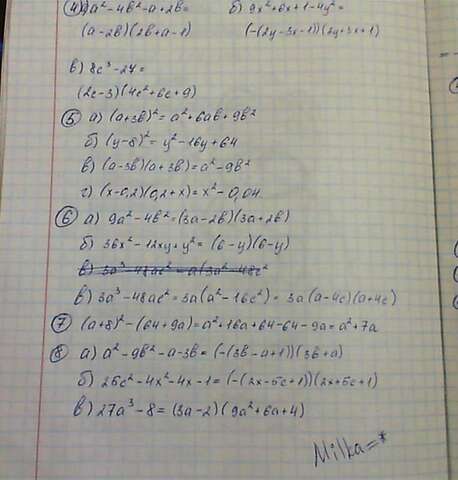 ④ a² - 4в² - a + 2в = б) 9x² + 6x + 1 - 4y² =
(a - 2в)(2в + a - 1) (-(2y - 3x - 1))(2y + 3x + 1)
в) 8c³ - 27 =
(2c - 3)(4c² + 6c + 9)
⑤ а) (a + 3в)² = a² + 6aв + 9в²
б) (y - 8)² = y² - 16y + 64
в) (a - 3в)(a + 3в) = a² - 9в²
г) (x - 0,2)(0,2 + x) = x² - 0,04.
⑥ а) 9a² - 4в² = (3a - 2в)(3a + 2в)
б) 36x² - 12xy + y² = (6 - y)(6 - y)
в) 3a³ - 48ac² = a(3a² - 48c²
в) 3a³ - 48ac² = 3a(a² - 16c²) = 3a(a - 4c)(a + 4c)
⑦ (a + 8)² - (64 + 9a) = a² + 16a + 64 - 64 - 9a = a² + 7a
⑧ а) a² - 9в² - a - 3в = (-(3в - a + 1))(3в + a)
б) 25c² - 4x² - 4x - 1 = (-(2x - 5c + 1))(2x + 5c + 1)
в) 27a³ - 8 = (3a - 2)(9a² + 6a + 4)
Milka=*